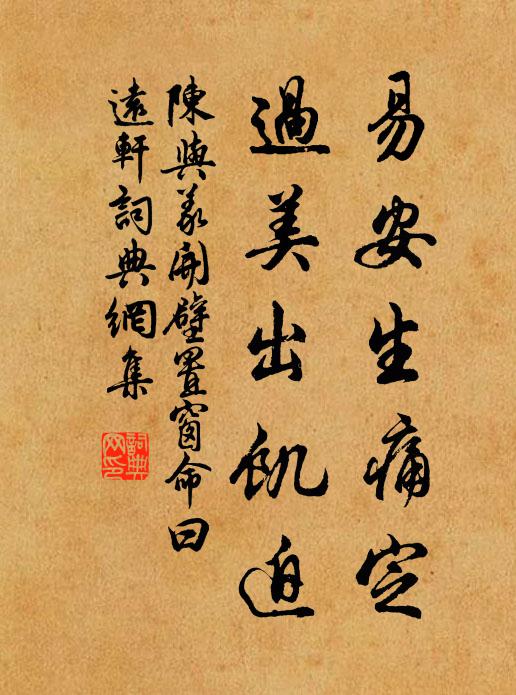 易安生痛定
過美出飢迫
陳與義開壁置窗命曰
遠軒詞典網集
詞典
网印